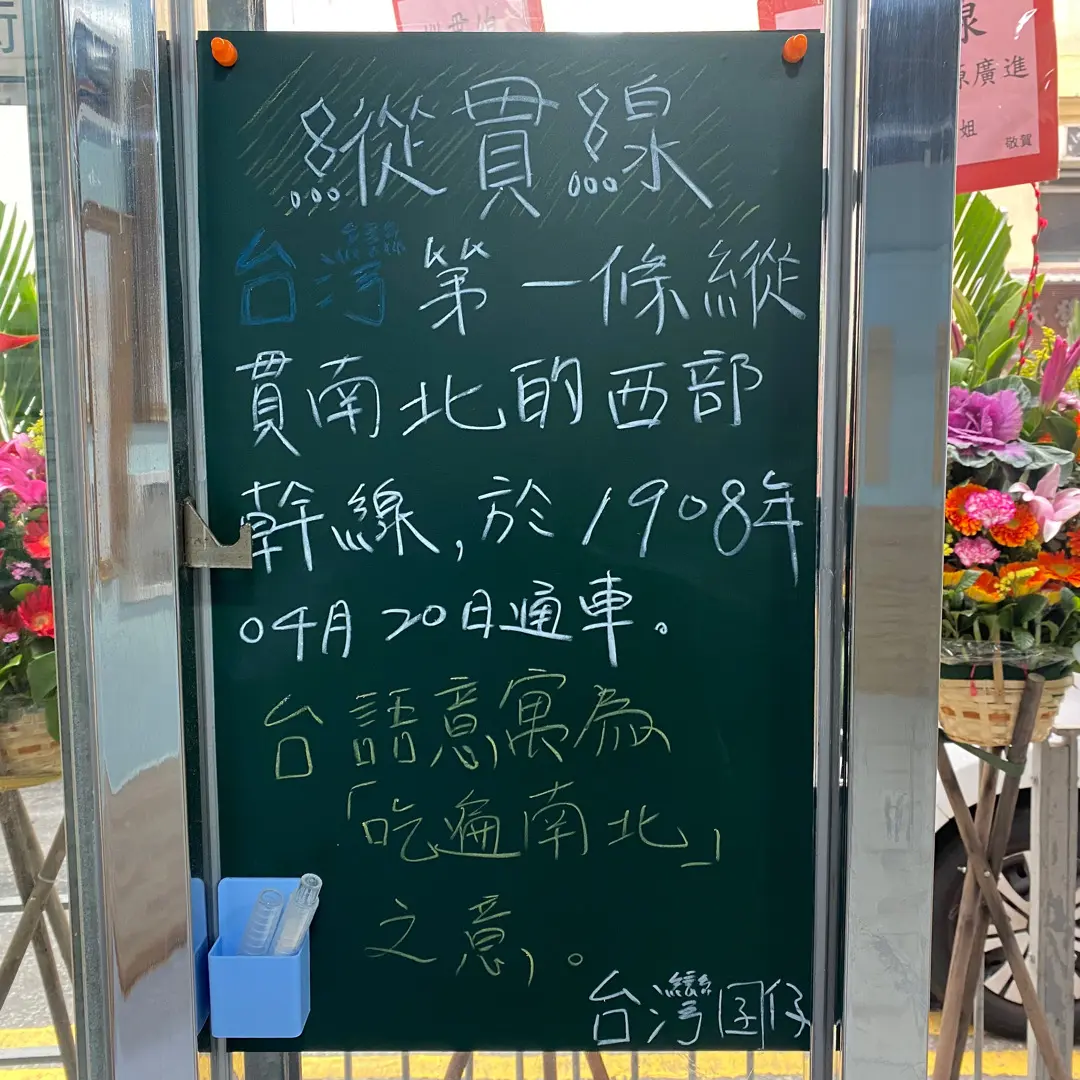 縱貫線
台灣第一條縱
貫南北的西部
幹線,於1908年
04月20日通車。
台語意寓為
「吃遍南北」
之意。
台灣囝仔
原廣進
姐
敬賀